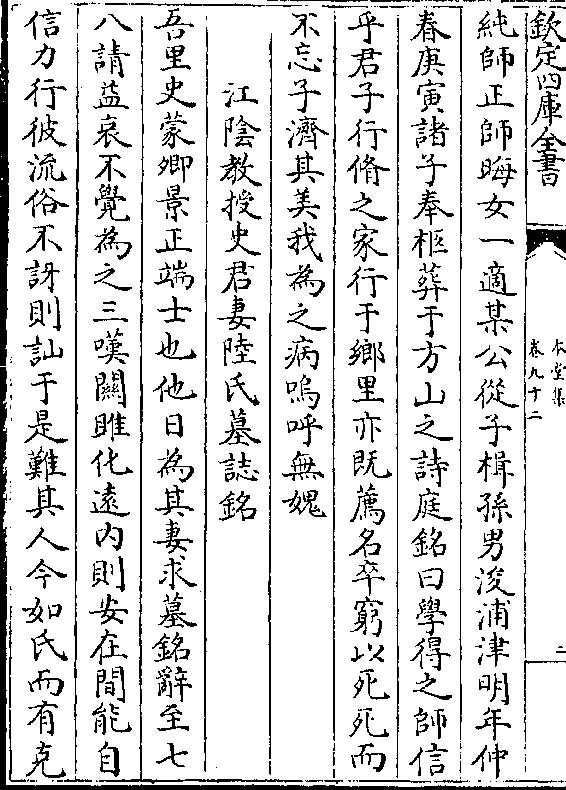 欽定四庫全書
本堂集
卷九十二
二
純師正師晦女一適某公從子楫孫男浚浦津明年仲
春庚寅諸子奉柩葬于方山之詩庭銘曰學得之師信
乎君子行脩之家行于鄉里亦既薦名卒窮以死死而
不忘子濟其美我為之病嗚呼無媿
江陰教授史君妻陸氏墓誌銘
吾里史蒙卿景正端士也他日為其妻求墓銘辭至七
八請益哀不覺為之三嘆關雎化遠内則安在間能自
信力行彼流俗不訝則訕于是難其人今如氏而有克